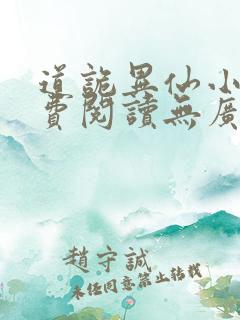 道詭異仙小
費閱讀無廣
趙守誠
未經同意禁止轉載